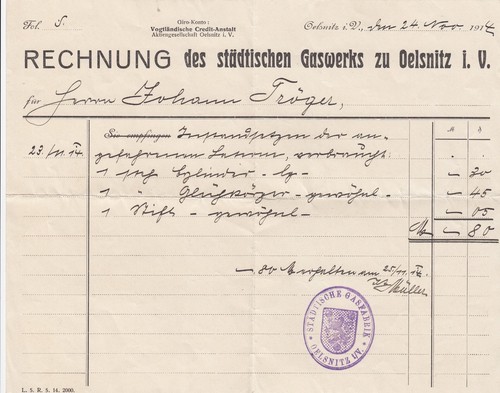 Fol. 5.
Giro-Konto:
Vogtländische Credit-Anstalt
Aktiengesellschaft Oelsnitz i. V.
Oelsnitz i. V., den 24. Nov. 1914
RECHNUNG des städtischen Gaswerks zu Oelsnitz i. V.
für Herrn Johann Tröger,
M ₰
Sie empfingen Instandsetzen der an-
23/11. 14. gefahrenen Latern, verbraucht:
1 Stck Cylinder - — 30
1 " Glühkörper - gewöhnl - — 45
1 Stift - gewöhnl - — 05
M — 80
— 80 Erhalten am 25/11. 14.
Müller
STÄDTISCHE GASFABRIK
OELSNITZ i/V.
L. S. R. S. 14. 2000.